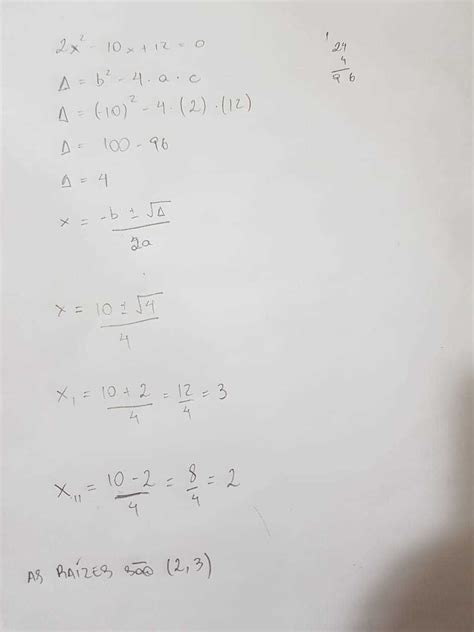 2x² - 10x + 12 = 0
Δ = b² - 4 · a · c
Δ = (-10)² - 4 · (2) · (12)
Δ = 100 - 96
Δ = 4
x = -b ± √Δ / 2a
x = 10 ± √4 / 4
x₁ = 10 + 2 / 4 = 12 / 4 = 3
x₁₁ = 10 - 2 / 4 = 8 / 4 = 2
AS RAÍZES SÃO (2, 3)
1
24
4
96